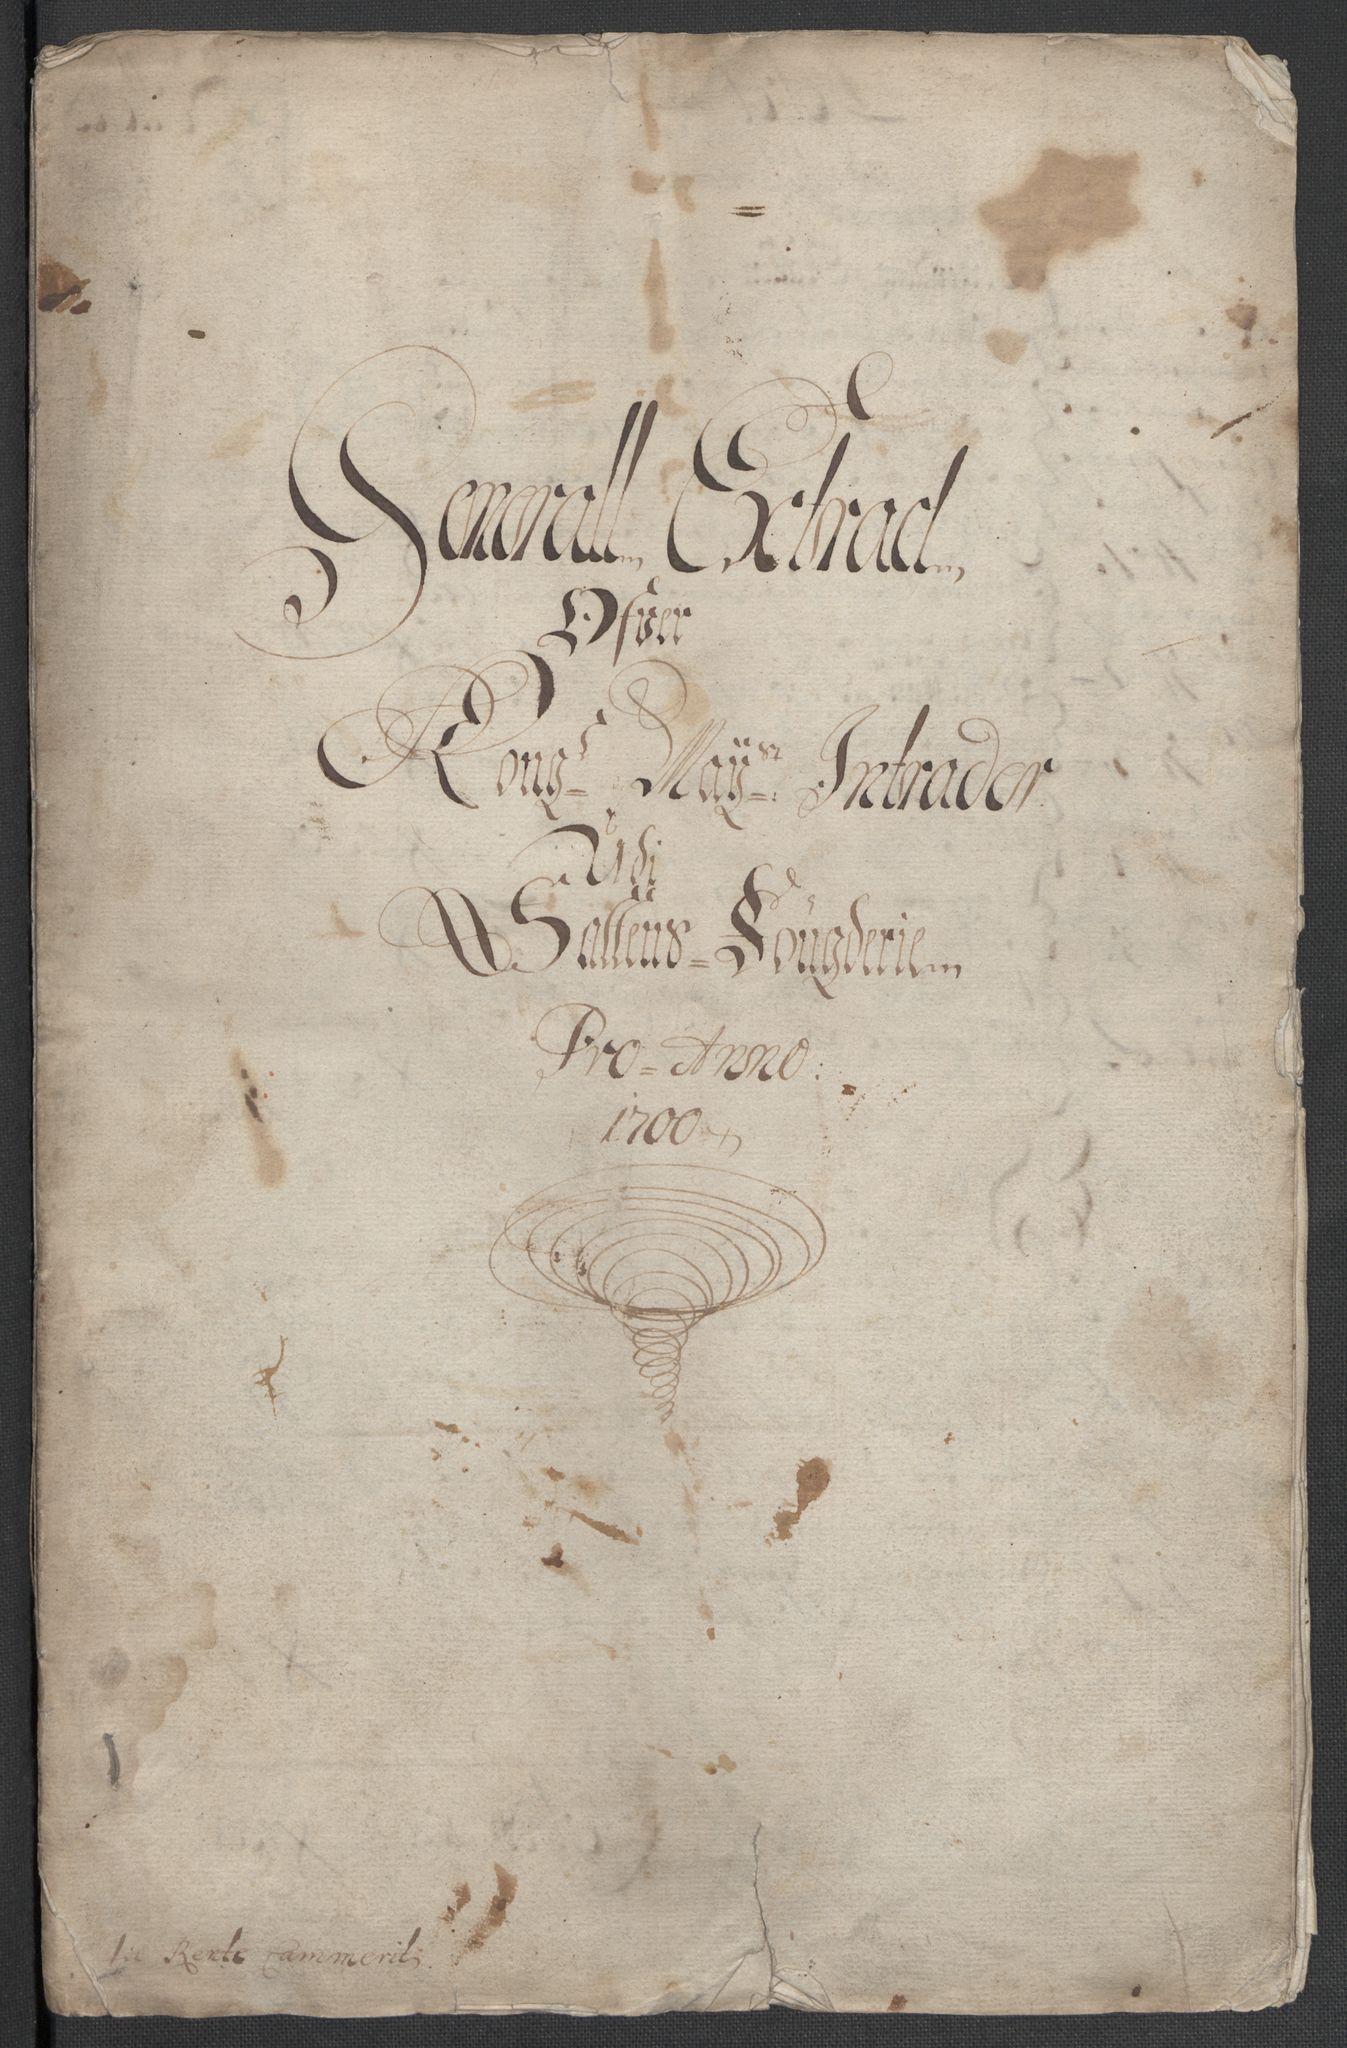 Generall Extract
Ofver
Kongl: Mayts: Intrader
Udi
Saltens = Fougderie
Pro = Anno:
1700
til Rente Cammerit